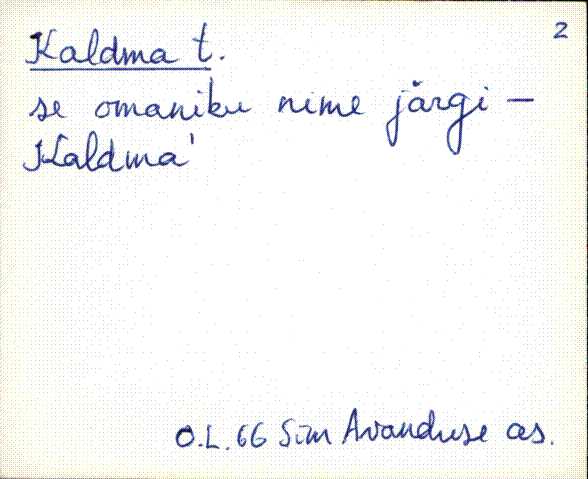 2
Kaldma t.
se omaniku nime järgi –
Kaldma'
O.L. 66 Sim Avanduse as.